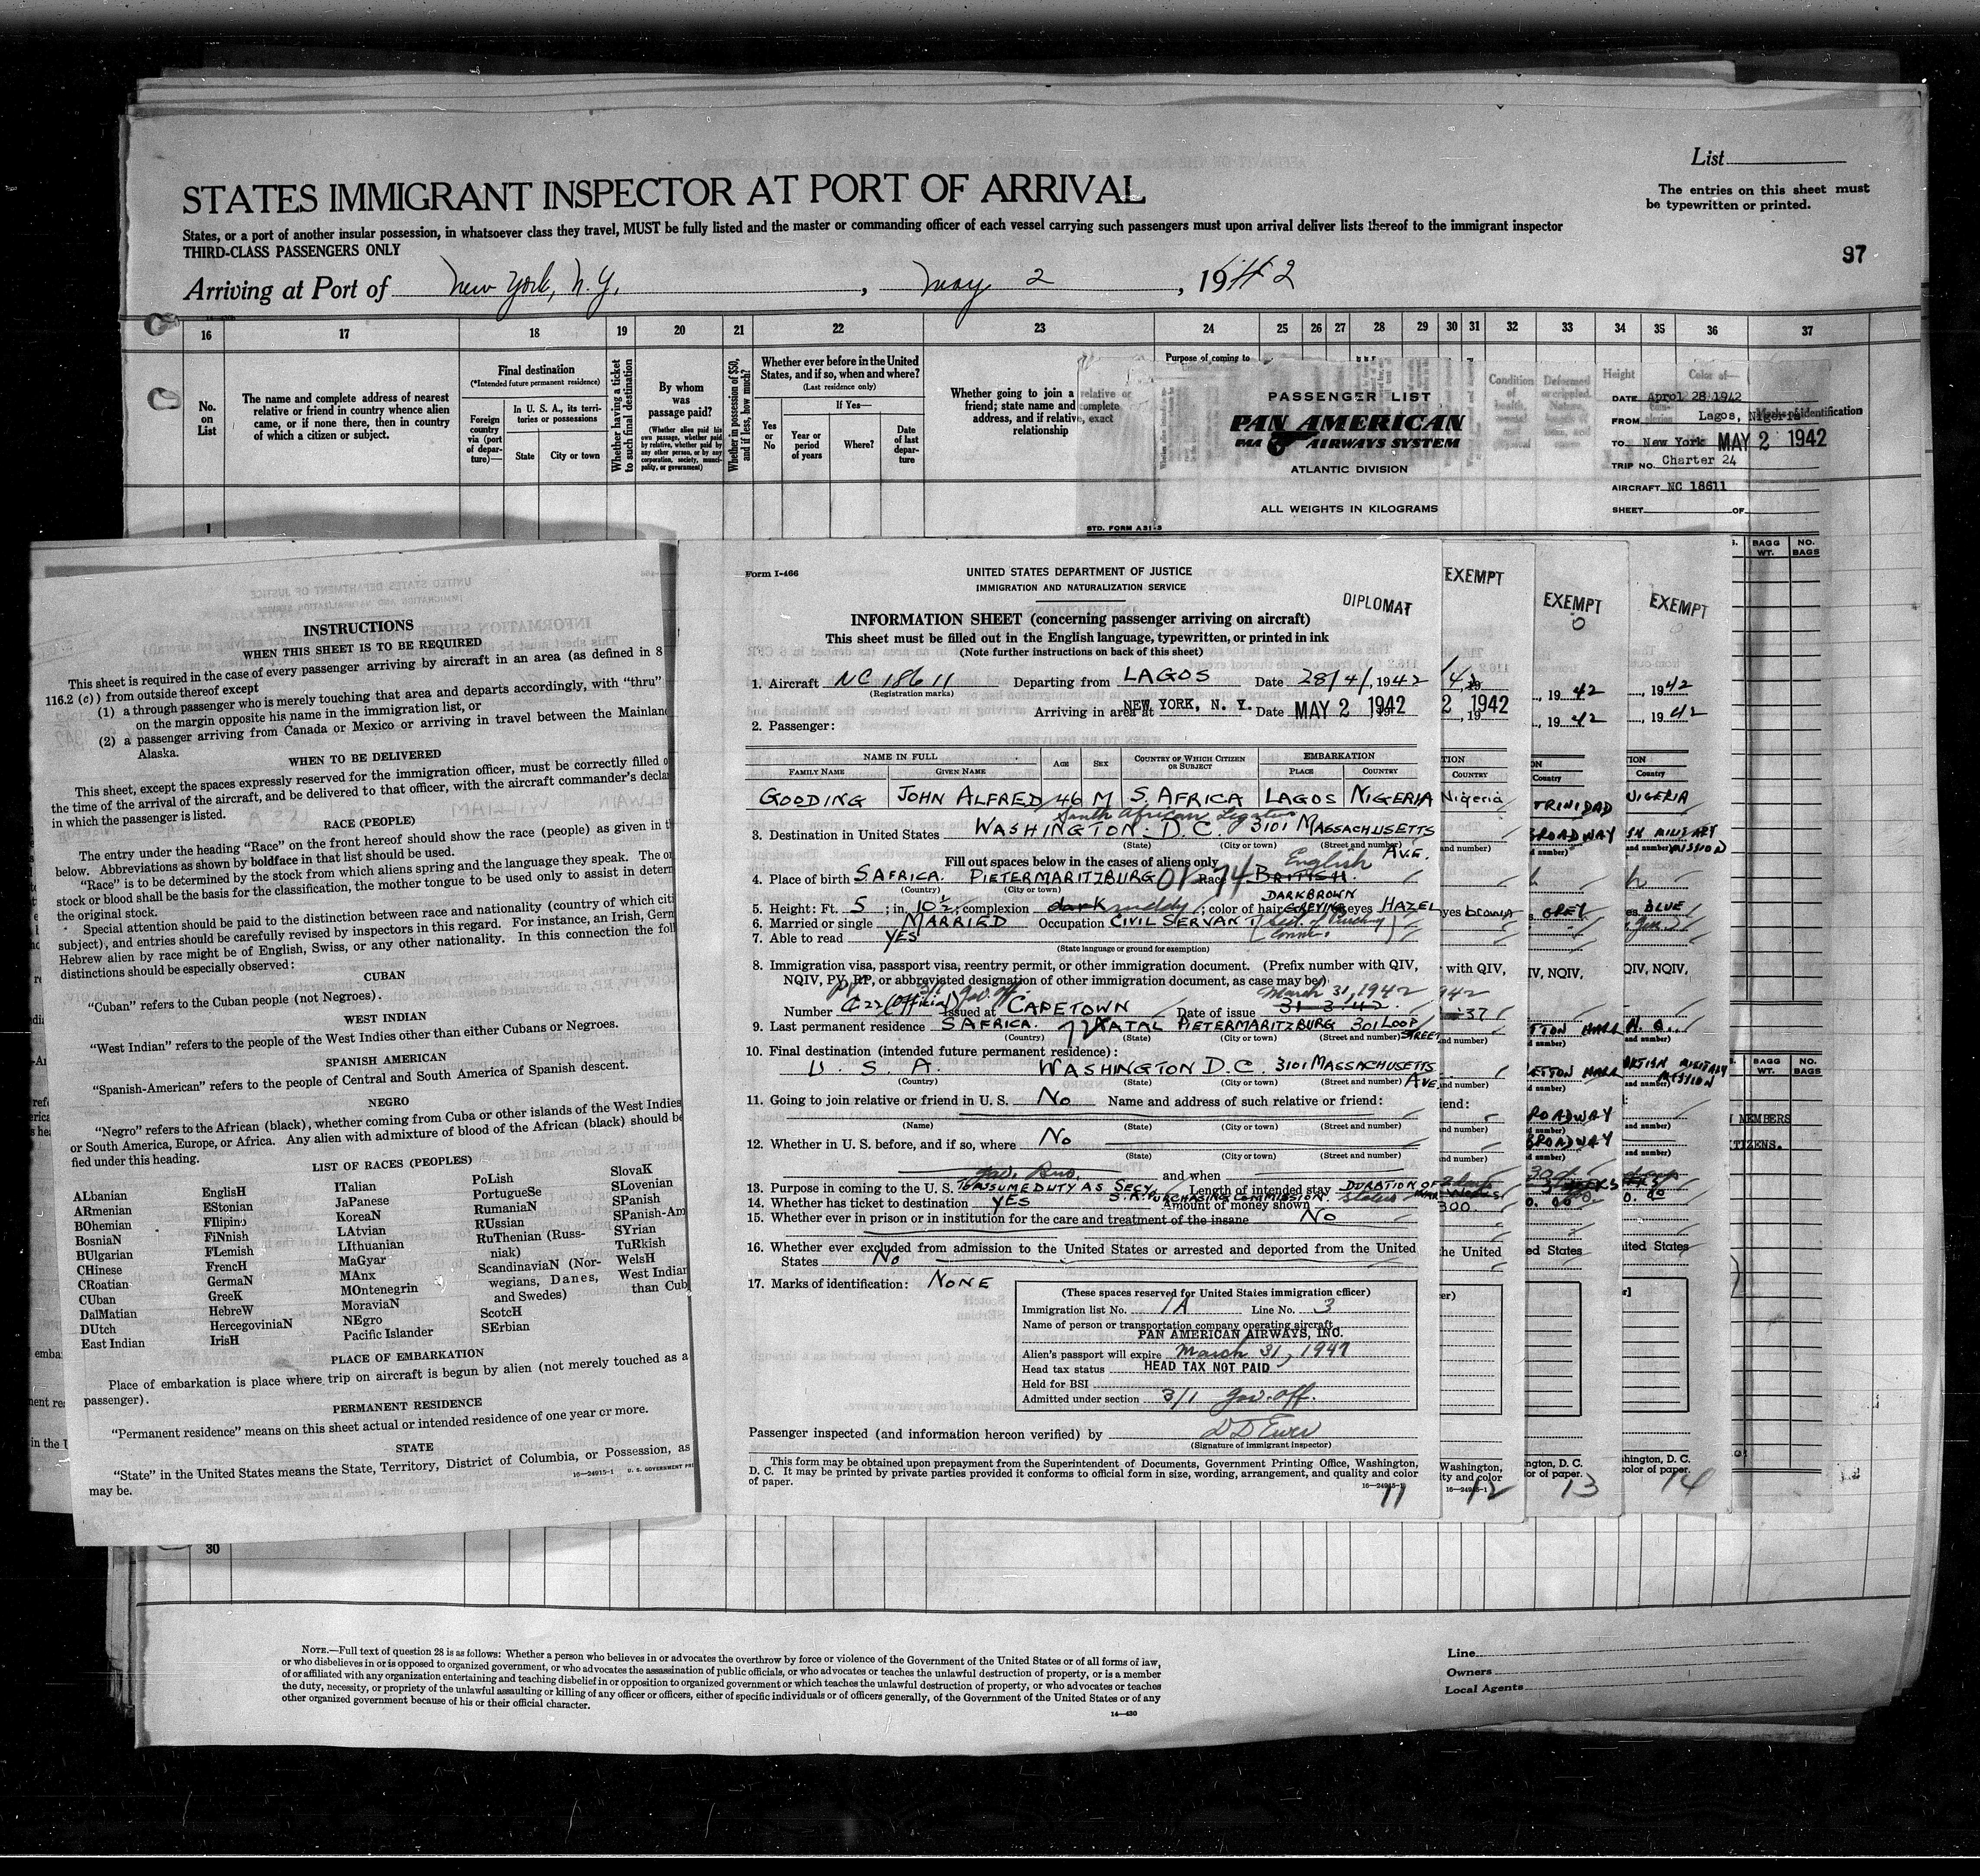 List
The entries on this sheet must
be typewritten or printed.
STATES IMMIGRANT INSPECTOR AT PORT OF ARRIVAL
States, or a port of another insular possession, in whatsoever class they travel, MUST be fully listed and the master or commanding officer of each vessel carrying such passengers must upon arrival deliver lists thereof to the immigrant inspector
THIRD-CLASS PASSENGERS ONLY
97
Arriving at Port of New York, N.Y., May 2, 1942
16 17 18 19 20 21 22 23 24 25 26 27 28 29 30 31 32 33 34 35 36 37
No. on List
The name and complete address of nearest
relative or friend in country whence alien
came, or if none there, then in country
of which a citizen or subject.
Final destination
(*Intended future permanent residence)
Foreign country via (port of departure)—
In U. S. A., its territories or possessions
State
City or town
Whether having a ticket to such final destination
By whom was passage paid?
(Whether alien paid his own passage, whether paid by relative, whether paid by any other person, or by any corporation, society, municipality, or government)
Whether in possession of $50, and if less, how much?
Whether ever before in the United
States, and if so, when and where?
(Last residence only)
Yes or No
If Yes—
Year or period of years
Where?
Date of last departure
Whether going to join a relative or
friend; state name and complete
address, and if relative, exact
relationship
Purpose of coming to
PASSENGER LIST
PAN AMERICAN
PAA AIRWAYS SYSTEM
ATLANTIC DIVISION
ALL WEIGHTS IN KILOGRAMS
STD. FORM A31-3
Condition of health, mental and physical
Height
Color of—
DATE Aprol 28 1942
FROM Lagos, Nigeria
TO New York MAY 2 1942
TRIP NO. Charter 24
AIRCRAFT NC 18611
SHEET OF
1
BAGG WT. NO. BAGS
INSTRUCTIONS
WHEN THIS SHEET IS TO BE REQUIRED
This sheet is required in the case of every passenger arriving by aircraft in an area (as defined in 8
116.2 (c)) from outside thereof except
(1) a through passenger who is merely touching that area and departs accordingly, with "thru"
on the margin opposite his name in the immigration list, or
(2) a passenger arriving from Canada or Mexico or arriving in travel between the Mainland
Alaska.
WHEN TO BE DELIVERED
This sheet, except the spaces expressly reserved for the immigration officer, must be correctly filled
the time of the arrival of the aircraft, and be delivered to that officer, with the aircraft commander's
in which the passenger is listed.
RACE (PEOPLE)
The entry under the heading "Race" on the front hereof should show the race (people) as given in
below. Abbreviations as shown by boldface in that list should be used.
"Race" is to be determined by the stock from which aliens spring and the language they speak. The
stock or blood shall be the basis for the classification, the mother tongue to be used only to assist in
the original stock.
Special attention should be paid to the distinction between race and nationality (country of which
subject), and entries should be carefully revised by inspectors in this regard. For instance, an Irish,
Hebrew alien by race might be of English, Swiss, or any other nationality. In this connection the
distinctions should be especially observed:
CUBAN
"Cuban" refers to the Cuban people (not Negroes).
WEST INDIAN
"West Indian" refers to the people of the West Indies other than either Cubans or Negroes.
SPANISH AMERICAN
"Spanish-American" refers to the people of Central and South America of Spanish descent.
NEGRO
"Negro" refers to the African (black), whether coming from Cuba or other islands of the West Indies
or South America, Europe, or Africa. Any alien with admixture of blood of the African (black) should be
fied under this heading.
LIST OF RACES (PEOPLES)
ALbanian
ARmenian
BOhemian
BosniaN
BUlgarian
CHinese
CRoatian
CUban
DalMatian
DUtch
East Indian
EnglisH
EStonian
FIlipino
FiNnish
FLemish
FrencH
GermaN
GreeK
HebreW
HercegoviniaN
IrisH
ITalian
JaPanese
KoreaN
LAtvian
LIthuanian
MaGyar
MAnx
MOntenegrin
MoraviaN
NEgro
Pacific Islander
PoLish
PortugueSe
RumaniaN
RUssian
RuThenian (Russ-
niak)
ScandinaviaN (Nor-
wegians, Danes,
and Swedes)
ScotcH
SErbian
SlovaK
SLovenian
SPanish
SPanish-Am
SYrian
TuRkish
WelsH
West Indian
than Cub
PLACE OF EMBARKATION
Place of embarkation is place where trip on aircraft is begun by alien (not merely touched as a
passenger).
PERMANENT RESIDENCE
"Permanent residence" means on this sheet actual or intended residence of one year or more.
STATE
"State" in the United States means the State, Territory, District of Columbia, or Possession, as
may be.
16—24915-1 U. S. GOVERNMENT
Form I-466
UNITED STATES DEPARTMENT OF JUSTICE
IMMIGRATION AND NATURALIZATION SERVICE
DIPLOMAT
INFORMATION SHEET (concerning passenger arriving on aircraft)
This sheet must be filled out in the English language, typewritten, or printed in ink
(Note further instructions on back of this sheet)
1. Aircraft NC 18611 Departing from LAGOS Date 28/4/, 1942
(Registration marks)
Arriving in area at NEW YORK, N. Y. Date MAY 2 1942
2. Passenger:
NAME IN FULL
FAMILY NAME GIVEN NAME AGE SEX COUNTRY OF WHICH CITIZEN OR SUBJECT EMBARKATION PLACE COUNTRY
GOODING JOHN ALFRED 46 M S. AFRICA LAGOS NIGERIA
South African Legation
3. Destination in United States WASHINGTON. D.C. 3101 MASSACHUSETTS AVE.
(State) (City or town) (Street and number)
Fill out spaces below in the cases of aliens only
English
4. Place of birth S AFRICA. PIETERMARITZBURG Race BRITISH.
(Country) (City or town)
5. Height: Ft. 5; in. 10½; complexion dark ruddy; color of hair DARK BROWN GREYING eyes HAZEL
6. Married or single MARRIED Occupation CIVIL SERVANT
7. Able to read YES
(State language or ground for exemption)
8. Immigration visa, passport visa, reentry permit, or other immigration document. (Prefix number with QIV,
NQIV, PV, RP, or abbreviated designation of other immigration document, as case may be)
March 31, 1942
Number C 22 (Official) Issued at CAPETOWN Date of issue 31-3-42.
9. Last permanent residence S AFRICA. NATAL PIETERMARITZBURG 301 LOOP STREET
(Country) (State) (City or town) (Street and number)
10. Final destination (intended future permanent residence):
U. S. A. WASHINGTON D.C. 3101 MASSACHUSETTS AVE
(Country) (State) (City or town) (Street and number)
11. Going to join relative or friend in U. S. NO Name and address of such relative or friend:
(Name) (State) (City or town) (Street and number)
12. Whether in U. S. before, and if so, where NO
(State) (City or town) (Street and number)
and when
13. Purpose in coming to the U. S. TO ASSUME DUTY AS SECY Length of intended stay DURATION OF
S. A. PURCHASING COMMISSION.
14. Whether has ticket to destination YES Amount of money shown
15. Whether ever in prison or in institution for the care and treatment of the insane NO
16. Whether ever excluded from admission to the United States or arrested and deported from the United
States NO
17. Marks of identification: NONE
(These spaces reserved for United States immigration officer)
Immigration list No. 1A Line No. 3
Name of person or transportation company operating aircraft
PAN AMERICAN AIRWAYS, INC.
Alien's passport will expire March 31, 1947
Head tax status HEAD TAX NOT PAID
Held for BSI
Admitted under section 3/1 gov. off.
Passenger inspected (and information hereon verified) by
(Signature of immigrant inspector)
This form may be obtained upon prepayment from the Superintendent of Documents, Government Printing Office, Washington,
D. C. It may be printed by private parties provided it conforms to official form in size, wording, arrangement, and quality and color
of paper.
16—24915-1
11
EXEMPT
2 1942
Nigeria
12
EXEMPT
1942
1942
TRINIDAD
BROADWAY
GREY
13
EXEMPT
1942
1942
NIGERIA
BLUE
14
MEMBERS
CITIZENS.
BAGG WT. NO. BAGS
30
NOTE.—Full text of question 28 is as follows: Whether a person who believes in or advocates the overthrow by force or violence of the Government of the United States or of all forms of law,
or who disbelieves in or is opposed to organized government, or who advocates the assassination of public officials, or who advocates or teaches the unlawful destruction of property, or is a member
of or affiliated with any organization entertaining and teaching disbelief in or opposition to organized government or which teaches the unlawful destruction of property, or who advocates or teaches
the duty, necessity, or propriety of the unlawful assaulting or killing of any officer or officers, either of specific individuals or of officers generally, of the Government of the United States or of any
other organized government because of his or their official character.
14—430
Line
Owners
Local Agents